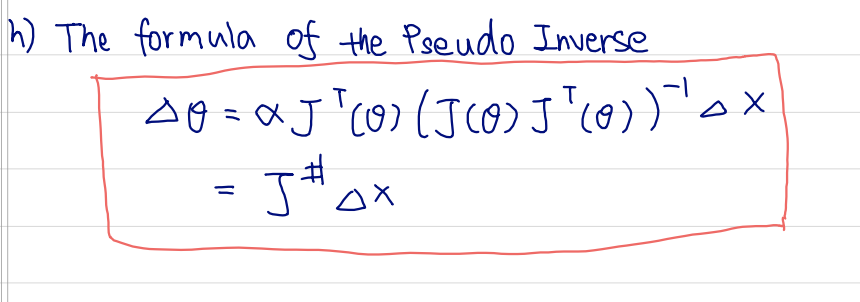 h) The formula of the Pseudo Inverse
Δθ = αJᵀ(θ)(J(θ)Jᵀ(θ))⁻¹ Δx
= J^# Δx